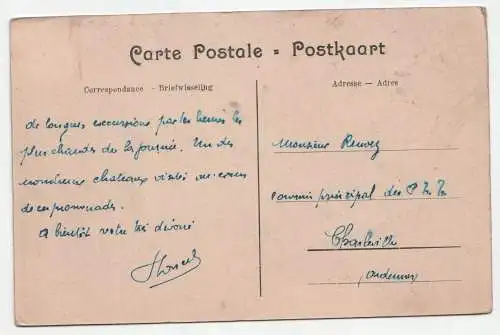 Carte Postale - Postkaart
Correspondance - Briefwisseling
Adresse — Adres
de longues excursions par les heures les
plus chaudes de la journée. Un des
nombreux chateaux visités au cours
de ces promenades.
A bientôt votre très dévoué
Monsieur Renvez
commis principal des P.T.T.
Charleville
Ardennes